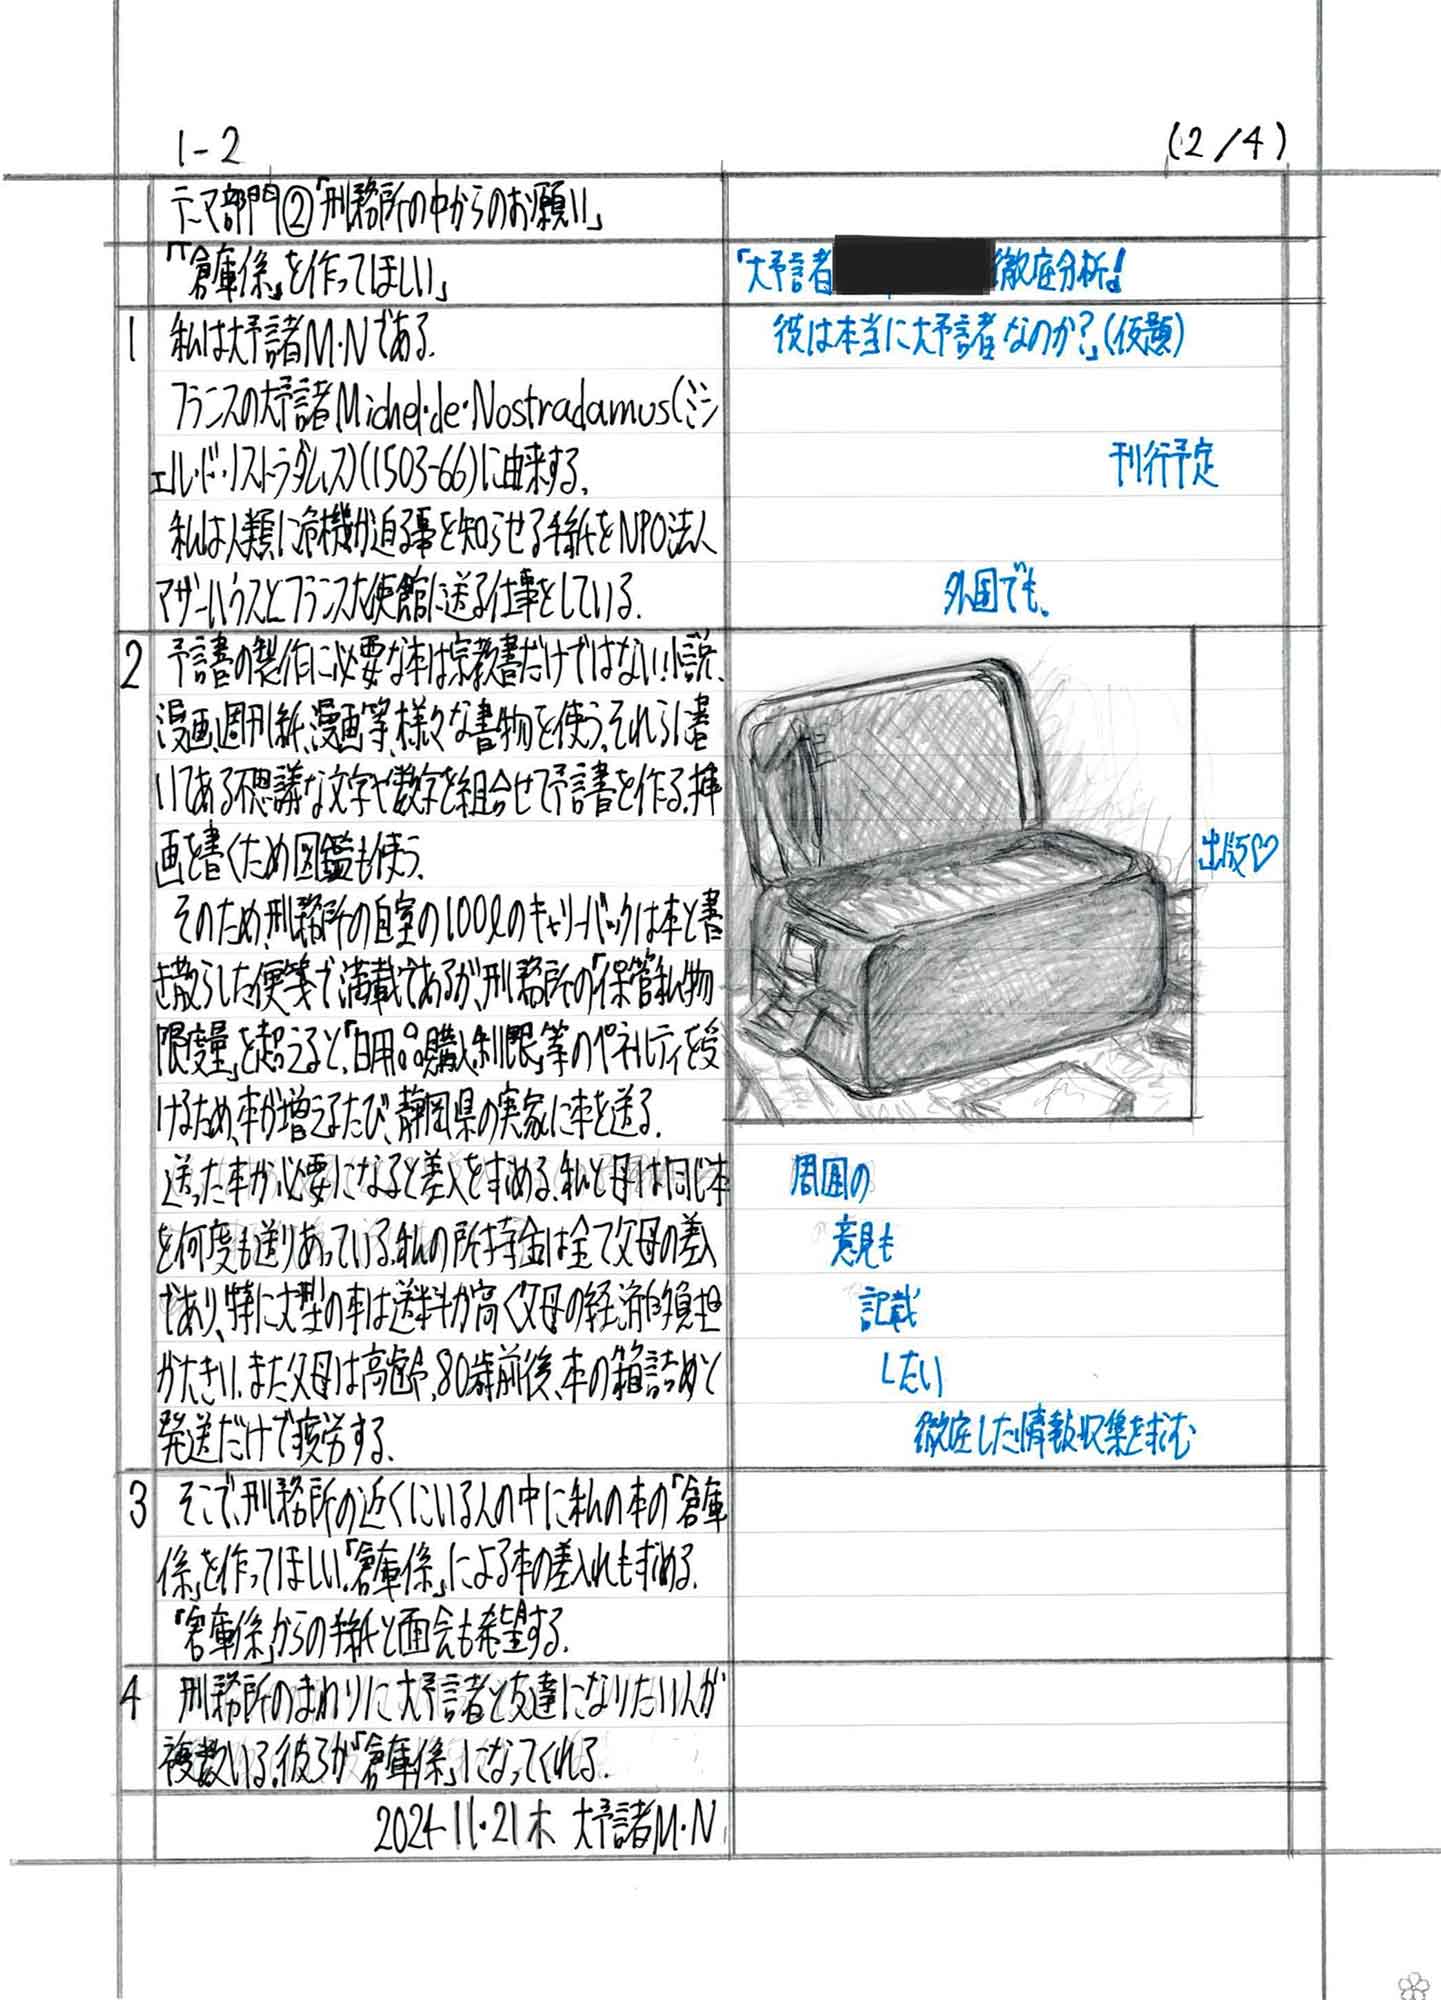 1-2
(2/4)
テーマ部門②「刑務所の中からのお願い」
「「倉庫係」を作ってほしい」
1 私は大予言者M・Nである。
フランスの大予言者Michel・de・Nostradamus(ミシ
ェル・ド・ノストラダムス)(1503-66)に由来する。
私は人類に危機が迫る事を知らせる手紙をNPO法人
マザーハウスとフランス大使館に送る仕事をしている。
2 予言書の製作に必要な本は宗教書だけではない。小説、
漫画、週刊紙、漫画等、様々な書物を使う。それらに書
いてある不思議な文字や数字を組合せて予言書を作る。挿
画を書くため図鑑も使う。
そのため、刑務所の自室の100ℓのキャリーバックは本と書
き散らした便箋で満載であるが、刑務所の「保管私物
限度量」を超えると、「日用品購入制限」等のペネルティを受
けるため、本が増えるたび、静岡県の実家に本を送る。
送った本が必要になると差入を求める。私と母は同じ本
を何度も送りあっている。私の所持金は全て父母の差入
であり、特に大型の本は送料が高く父母の経済的負担
が大きい。また父母は高齢で、80歳前後、本の箱詰めと
発送だけで疲労する。
3 そこで、刑務所の近くにいる人の中に私の本の「倉庫
係」を作ってほしい。「倉庫係」による本の差入れも求める。
「倉庫係」からの手紙と面会も希望する。
4 刑務所のまわりに大予言者と友達になりたい人が
複数いる。彼らが「倉庫係」になってくれる。
2024-11・21木 大予言者M・N
「大予言者
徹底分析!
彼は本当に大予言者なのか?」(仮題)
刊行予定
外国でも。
出版♡
周囲の
意見も
記載
したい
徹底した情報収集を求む